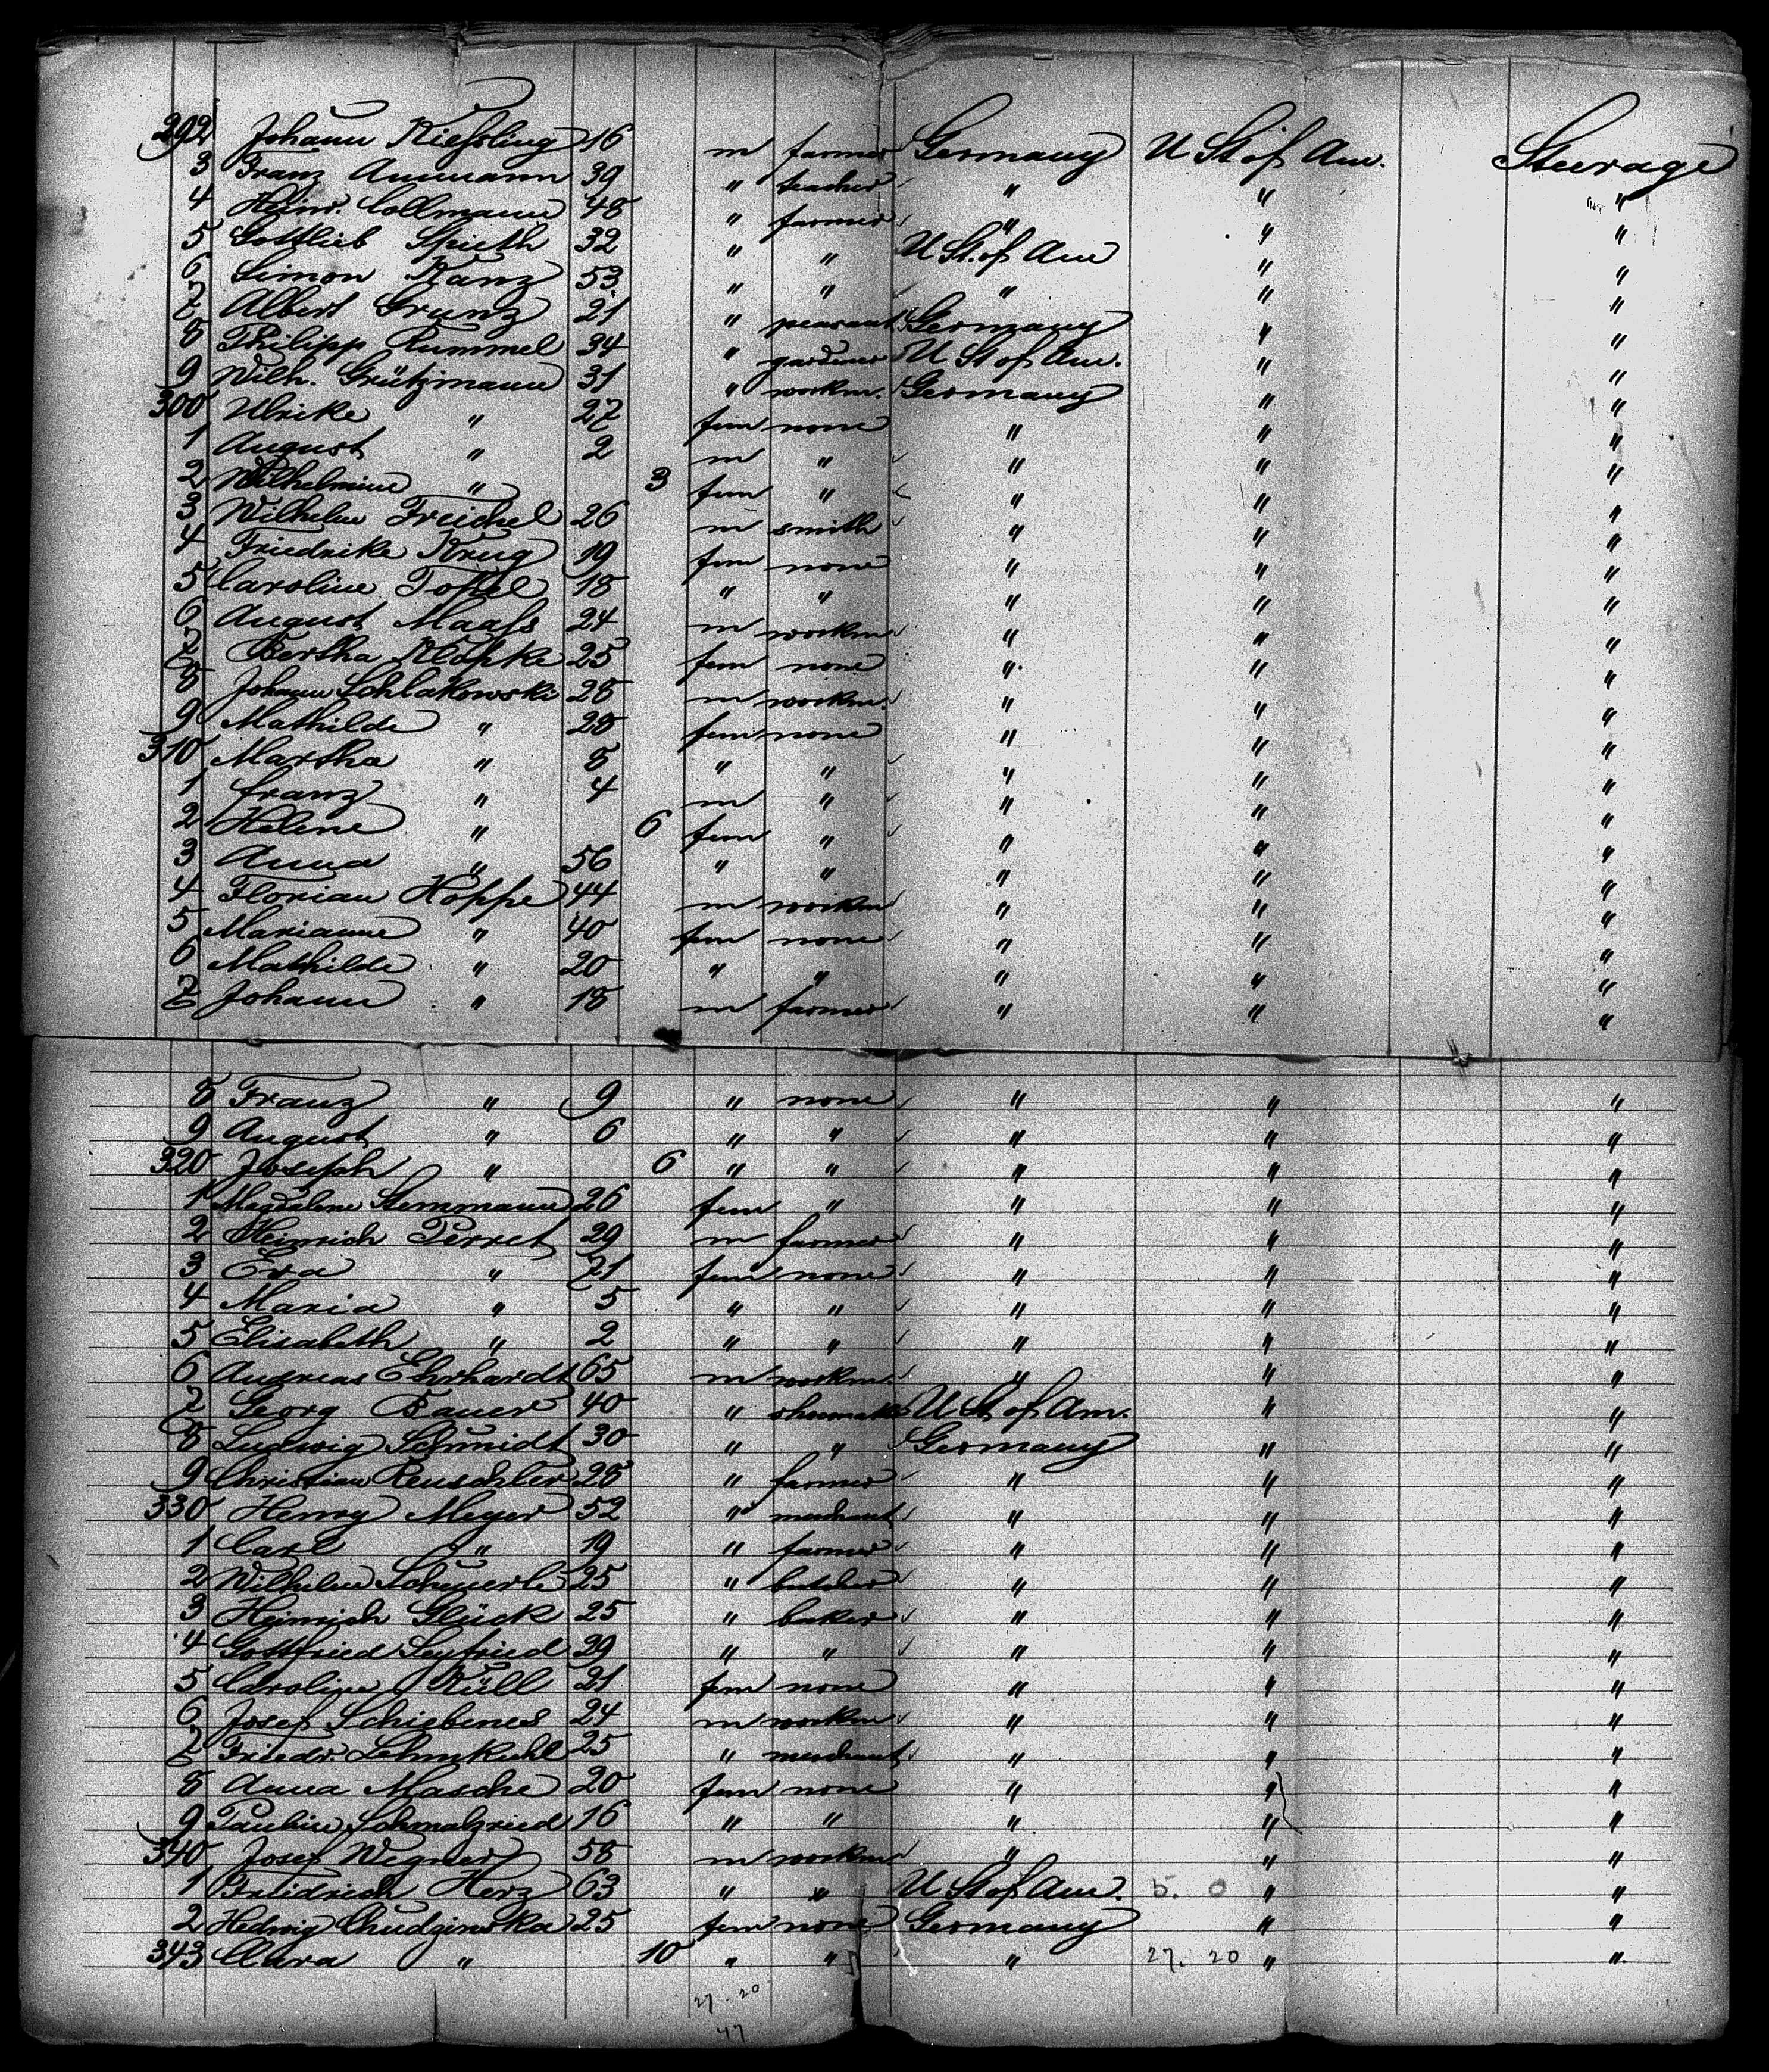 292 Johann Kiessling 16 m farmer Germany U St of Am. Steerage
3 Franz Aumann 39 " teacher " " "
4 Heinr. Collmann 48 " farmer " " "
5 Gottlieb Spieth 32 " " U St. of Am " "
6 Simon Kanz 53 " " " " "
7 Albert Grunz 21 " peasant Germany " "
8 Philipp Rummel 34 " gardener U St of Am. " "
9 Wilh. Grützmann 31 " workm. Germany " "
300 Ulrike " 27 fem none " " "
1 August " 2 m " " " "
2 Wilhelmine " 3 fem " " " "
3 Wilhelm Freichel 26 m smith " " "
4 Friedrike Krug 19 fem none " " "
5 Caroline 18 " " " " "
6 August Maass 24 m workm " " "
7 Bertha Klopke 25 fem none " " "
8 Johann Schlakowski 28 m workm. " " "
9 Mathilde " 28 fem none " " "
310 Martha " 8 " " " " "
1 Franz " 4 m " " " "
2 Helene " 6 fem " " " "
3 Anna " 56 " " " " "
4 Florian Hoppe 44 m workm " " "
5 Marianne " 40 fem none " " "
6 Mathilde " 20 " " " " "
7 Johann " 18 m farmer " " "
8 Franz " 9 " none " " "
9 August " 6 " " " " "
320 Joseph " 6 " " " " "
1 Magdalene Stemmann 26 fem " " " "
2 Heinrich Perret 29 m farmer " " "
3 Eva " 21 fem none " " "
4 Maria " 5 " " " " "
5 Elisabeth " 2 " " " " "
6 Andreas Ehrhardt 65 m workm. " " "
7 Georg Bauer 40 " shoemak U St of Am. " "
8 Ludwig Schmidt 30 " " Germany " "
9 Christian Reuschler 28 " farmer " " "
330 Henry Meyer 52 " merchant " " "
1 Carl " 19 " farmer " " "
2 Wilhelm Scheuerle 25 " butcher " " "
3 Heinrich Glück 25 " baker " " "
4 Gottfried Seyfried 29 " " " " "
5 Caroline Küll 21 fem none " " "
6 Josef Schiebenes 24 m workm " " "
7 Friedr. Lehmkuhl 25 " merchant " " "
8 Anna Masche 20 fem none " " "
9 Pauline Schmalzried 16 " " " " "
340 Josef Wegner 58 m workm " " "
1 Freidrich Herz 63 " " U St of Am. 5. 0 " "
2 Hedwig Chudzinska 25 fem none Germany " "
343 Clara " 10 " " " 27. 20 " "
27. 20
47